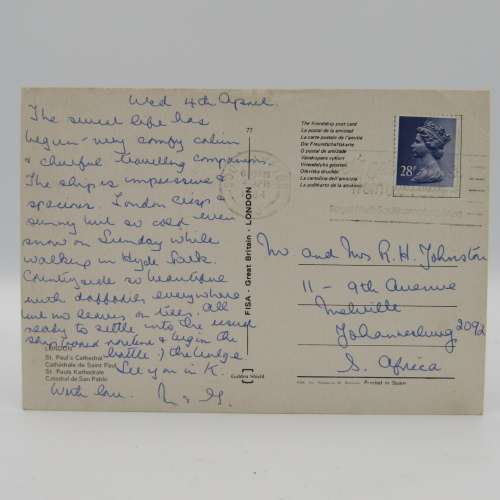 Wed 4th April.
The sweet life has
begun - very comfy cabin
& cheerful travelling companion.
The ship is impressive &
spacious. London crisp &
sunny but so cold even
snow on Sunday while
walking in Hyde Park.
Countryside so beautiful
with daffodils everywhere
but no leaves on trees. All
ready to settle into the usual
shipboard routine & begin the
battle of the bulge
See you in K.
With love.
LONDON
St. Paul's Cathedral
Cathédrale de Saint Paul
St. Pauls Kathedrale
Catedral de San Pablo
77
FISA - Great Britain - LONDON
Golden Shield
The friendship post card
La postal de la amistad
La carte postale de l'amitié
Die Freundschaftskarte
O postal de amizade
Vriendschaps
La cartolina dell'amicizia
28
Mr and Mrs R.H. Johnston
11 - 9th Avenue
Melville
Johannesburg 2092
S. Africa
Printed in Spain